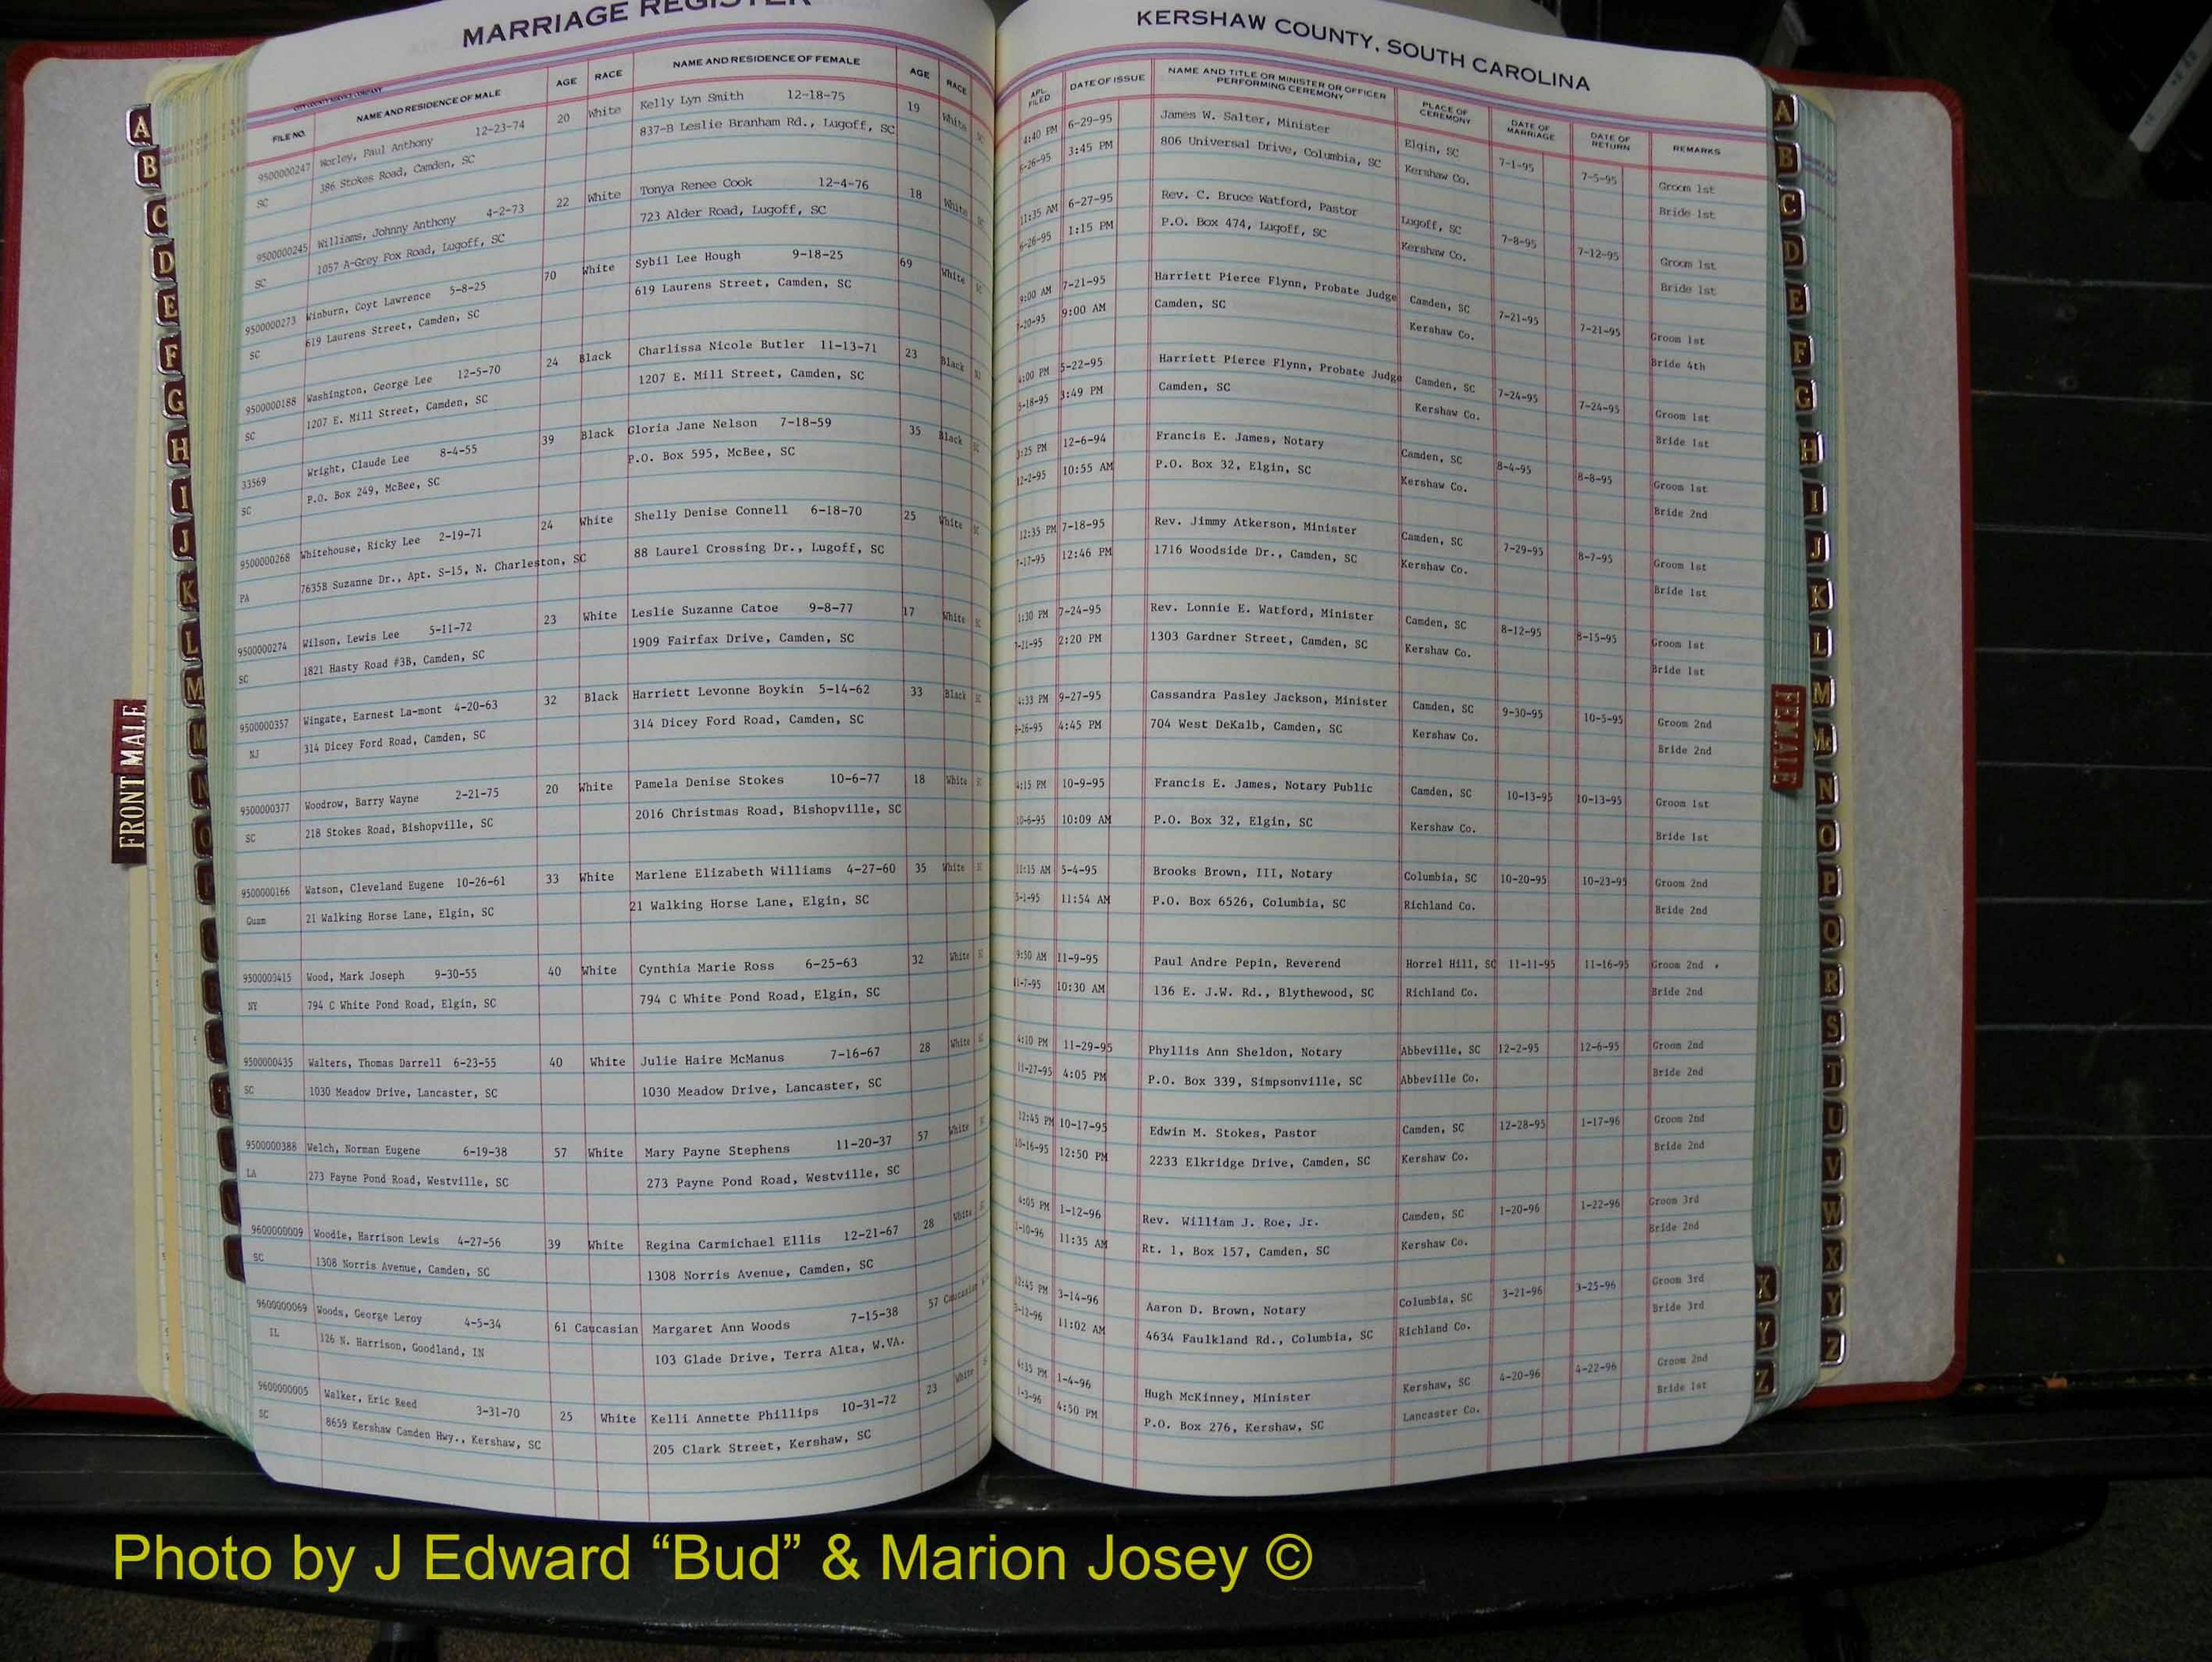 MARRIAGE REGISTER
KERSHAW COUNTY, SOUTH CAROLINA
CITY COUNTY SERVICE COMPANY
FILE NO. NAME AND RESIDENCE OF MALE AGE RACE NAME AND RESIDENCE OF FEMALE AGE RACE
APL. FILED DATE OF ISSUE NAME AND TITLE OR MINISTER OR OFFICER PERFORMING CEREMONY PLACE OF CEREMONY DATE OF MARRIAGE DATE OF RETURN REMARKS
9500000247 Worley, Paul Anthony 12-23-74 20 White Kelly Lyn Smith 12-18-75 19 White SC 4:40 PM 6-29-95 James W. Salter, Minister Elgin, SC 7-1-95 7-5-95 Groom 1st
SC 386 Stokes Road, Camden, SC 837-B Leslie Branham Rd., Lugoff, SC 6-26-95 3:45 PM 806 Universal Drive, Columbia, SC Kershaw Co. Bride 1st
9500000245 Williams, Johnny Anthony 4-2-73 22 White Tonya Renee Cook 12-4-76 18 White SC 11:35 AM 6-27-95 Rev. C. Bruce Watford, Pastor Lugoff, SC 7-8-95 7-12-95 Groom 1st
SC 1057 A-Grey Fox Road, Lugoff, SC 723 Alder Road, Lugoff, SC 6-26-95 1:15 PM P.O. Box 474, Lugoff, SC Kershaw Co. Bride 1st
9500000273 Winburn, Coyt Lawrence 5-8-25 70 White Sybil Lee Hough 9-18-25 69 White SC 9:00 AM 7-21-95 Harriett Pierce Flynn, Probate Judge Camden, SC 7-21-95 7-21-95 Groom 1st
SC 619 Laurens Street, Camden, SC 619 Laurens Street, Camden, SC 7-20-95 9:00 AM Camden, SC Kershaw Co. Bride 4th
9500000188 Washington, George Lee 12-5-70 24 Black Charlissa Nicole Butler 11-13-71 23 Black 4:00 PM 5-22-95 Harriett Pierce Flynn, Probate Judge Camden, SC 7-24-95 7-24-95 Groom 1st
SC 1207 E. Mill Street, Camden, SC 1207 E. Mill Street, Camden, SC 5-18-95 3:49 PM Camden, SC Kershaw Co. Bride 1st
33569 Wright, Claude Lee 8-4-55 39 Black Gloria Jane Nelson 7-18-59 35 Black SC 3:25 PM 12-6-94 Francis E. James, Notary Camden, SC 8-4-95 8-8-95 Groom 1st
SC P.O. Box 249, McBee, SC P.O. Box 595, McBee, SC 12-2-95 10:55 AM P.O. Box 32, Elgin, SC Kershaw Co. Bride 2nd
9500000268 Whitehouse, Ricky Lee 2-19-71 24 White Shelly Denise Connell 6-18-70 25 White SC 12:35 PM 7-18-95 Rev. Jimmy Atkerson, Minister Camden, SC 7-29-95 8-7-95 Groom 1st
PA 7635B Suzanne Dr., Apt. S-15, N. Charleston, SC 88 Laurel Crossing Dr., Lugoff, SC 7-17-95 12:46 PM 1716 Woodside Dr., Camden, SC Kershaw Co. Bride 1st
9500000274 Wilson, Lewis Lee 5-11-72 23 White Leslie Suzanne Catoe 9-8-77 17 White SC 1:30 PM 7-24-95 Rev. Lonnie E. Watford, Minister Camden, SC 8-12-95 8-15-95 Groom 1st
SC 1821 Hasty Road #3B, Camden, SC 1909 Fairfax Drive, Camden, SC 7-21-95 2:20 PM 1303 Gardner Street, Camden, SC Kershaw Co. Bride 1st
9500000357 Wingate, Earnest La-mont 4-20-63 32 Black Harriett Levonne Boykin 5-14-62 33 Black SC 4:33 PM 9-27-95 Cassandra Pasley Jackson, Minister Camden, SC 9-30-95 10-5-95 Groom 2nd
NJ 314 Dicey Ford Road, Camden, SC 314 Dicey Ford Road, Camden, SC 9-26-95 4:45 PM 704 West DeKalb, Camden, SC Kershaw Co. Bride 2nd
9500000377 Woodrow, Barry Wayne 2-21-75 20 White Pamela Denise Stokes 10-6-77 18 White SC 4:15 PM 10-9-95 Francis E. James, Notary Public Camden, SC 10-13-95 10-13-95 Groom 1st
SC 218 Stokes Road, Bishopville, SC 2016 Christmas Road, Bishopville, SC 10-6-95 10:09 AM P.O. Box 32, Elgin, SC Kershaw Co. Bride 1st
9500000166 Watson, Cleveland Eugene 10-26-61 33 White Marlene Elizabeth Williams 4-27-60 35 White 11:15 AM 5-4-95 Brooks Brown, III, Notary Columbia, SC 10-20-95 10-23-95 Groom 2nd
Guam 21 Walking Horse Lane, Elgin, SC 21 Walking Horse Lane, Elgin, SC 5-1-95 11:54 AM P.O. Box 6526, Columbia, SC Richland Co. Bride 2nd
9500000415 Wood, Mark Joseph 9-30-55 40 White Cynthia Marie Ross 6-25-63 32 White 9:50 AM 11-9-95 Paul Andre Pepin, Reverend Horrel Hill, SC 11-11-95 11-16-95 Groom 2nd
NY 794 C White Pond Road, Elgin, SC 794 C White Pond Road, Elgin, SC 11-7-95 10:30 AM 136 E. J.W. Rd., Blythewood, SC Richland Co. Bride 2nd
9500000435 Walters, Thomas Darrell 6-23-55 40 White Julie Haire McManus 7-16-67 28 White 4:10 PM 11-29-95 Phyllis Ann Sheldon, Notary Abbeville, SC 12-2-95 12-6-95 Groom 2nd
SC 1030 Meadow Drive, Lancaster, SC 1030 Meadow Drive, Lancaster, SC 11-27-95 4:05 PM P.O. Box 339, Simpsonville, SC Abbeville Co. Bride 2nd
9500000388 Welch, Norman Eugene 6-19-38 57 White Mary Payne Stephens 11-20-37 57 White 12:45 PM 10-17-95 Edwin M. Stokes, Pastor Camden, SC 12-28-95 1-17-96 Groom 2nd
LA 273 Payne Pond Road, Westville, SC 273 Payne Pond Road, Westville, SC 10-16-95 12:50 PM 2233 Elkridge Drive, Camden, SC Kershaw Co. Bride 2nd
9600000009 Woodie, Harrison Lewis 4-27-56 39 White Regina Carmichael Ellis 12-21-67 28 White 4:05 PM 1-12-96 Rev. William J. Roe, Jr. Camden, SC 1-20-96 1-22-96 Groom 3rd
SC 1308 Norris Avenue, Camden, SC 1308 Norris Avenue, Camden, SC 1-10-96 11:35 AM Rt. 1, Box 157, Camden, SC Kershaw Co. Bride 2nd
9600000069 Woods, George Leroy 4-5-34 61 Caucasian Margaret Ann Woods 7-15-38 57 Caucasian 12:45 PM 3-14-96 Aaron D. Brown, Notary Columbia, SC 3-21-96 3-25-96 Groom 3rd
IL 126 N. Harrison, Goodland, IN 103 Glade Drive, Terra Alta, W.VA. 3-12-96 11:02 AM 4634 Faulkland Rd., Columbia, SC Richland Co. Bride 3rd
9600000005 Walker, Eric Reed 3-31-70 25 White Kelli Annette Phillips 10-31-72 23 White 4:35 PM 1-4-96 Hugh McKinney, Minister Kershaw, SC 4-20-96 4-22-96 Groom 2nd
SC 8659 Kershaw Camden Hwy., Kershaw, SC 205 Clark Street, Kershaw, SC 1-3-96 4:50 PM P.O. Box 276, Kershaw, SC Lancaster Co. Bride 1st
A
B
C
D
E
F
G
H
I
J
K
L
M
N
O
FRONT MALE
X
Y
Z
A
B
C
D
E
F
G
H
I
J
K
L
M
Mc
N
O
P
Q
R
S
T
U
V
W
X
Y
Z
FEMALE
Photo by J Edward “Bud” & Marion Josey ©